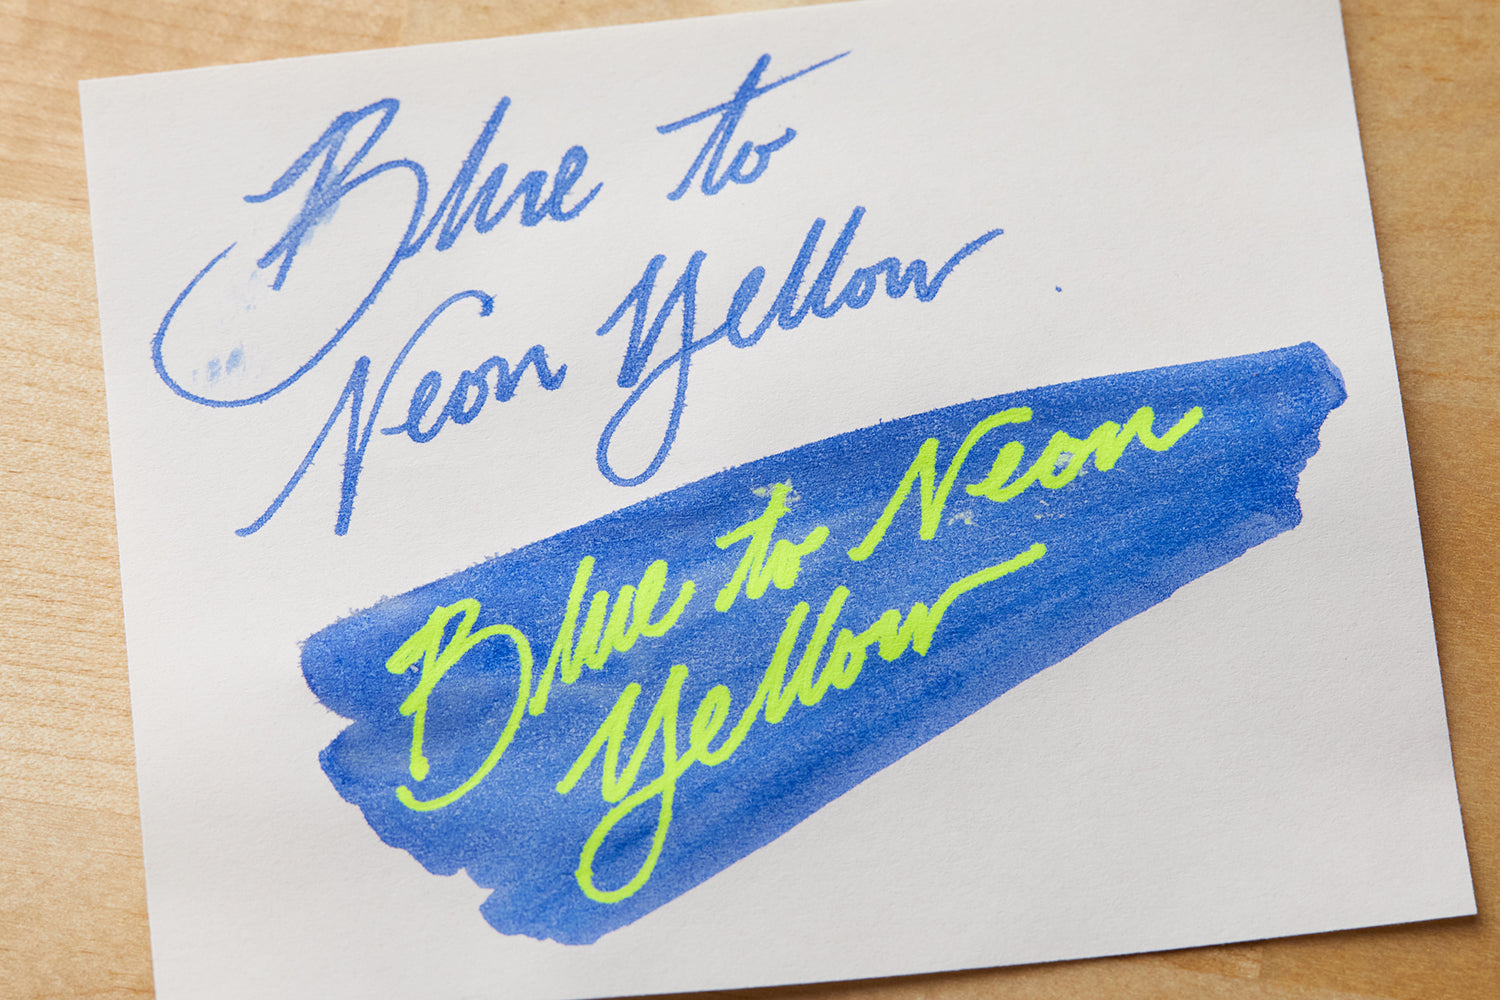 Blue to
Neon Yellow
Blue to Neon
Yellow